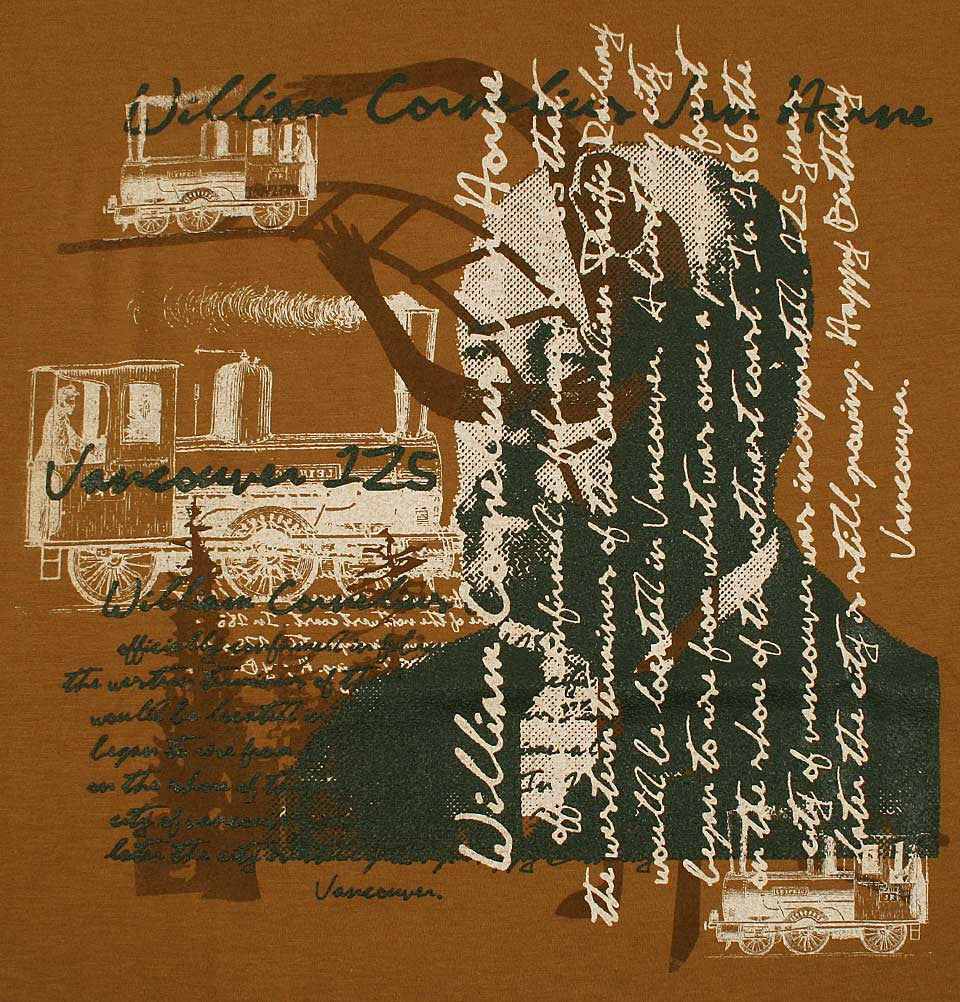 William Cornelius Van Horne
Vancouver 125
William Cornelius
officially confirmed
the western terminus of the
would be located in
began to rise from
on the shore of the
city of vancouver
later the city
Vancouver.
William Cornelius Van Horne
officially confirmed that
the western terminus of the Canadian Pacific Railway
would be located in Vancouver. A bustling city
began to rise from what was once a forest
on the shore of the northwest coast. In 1886 the
city of vancouver was incorporated. 125 years
later the city is still growing. Happy Birthday
Vancouver.